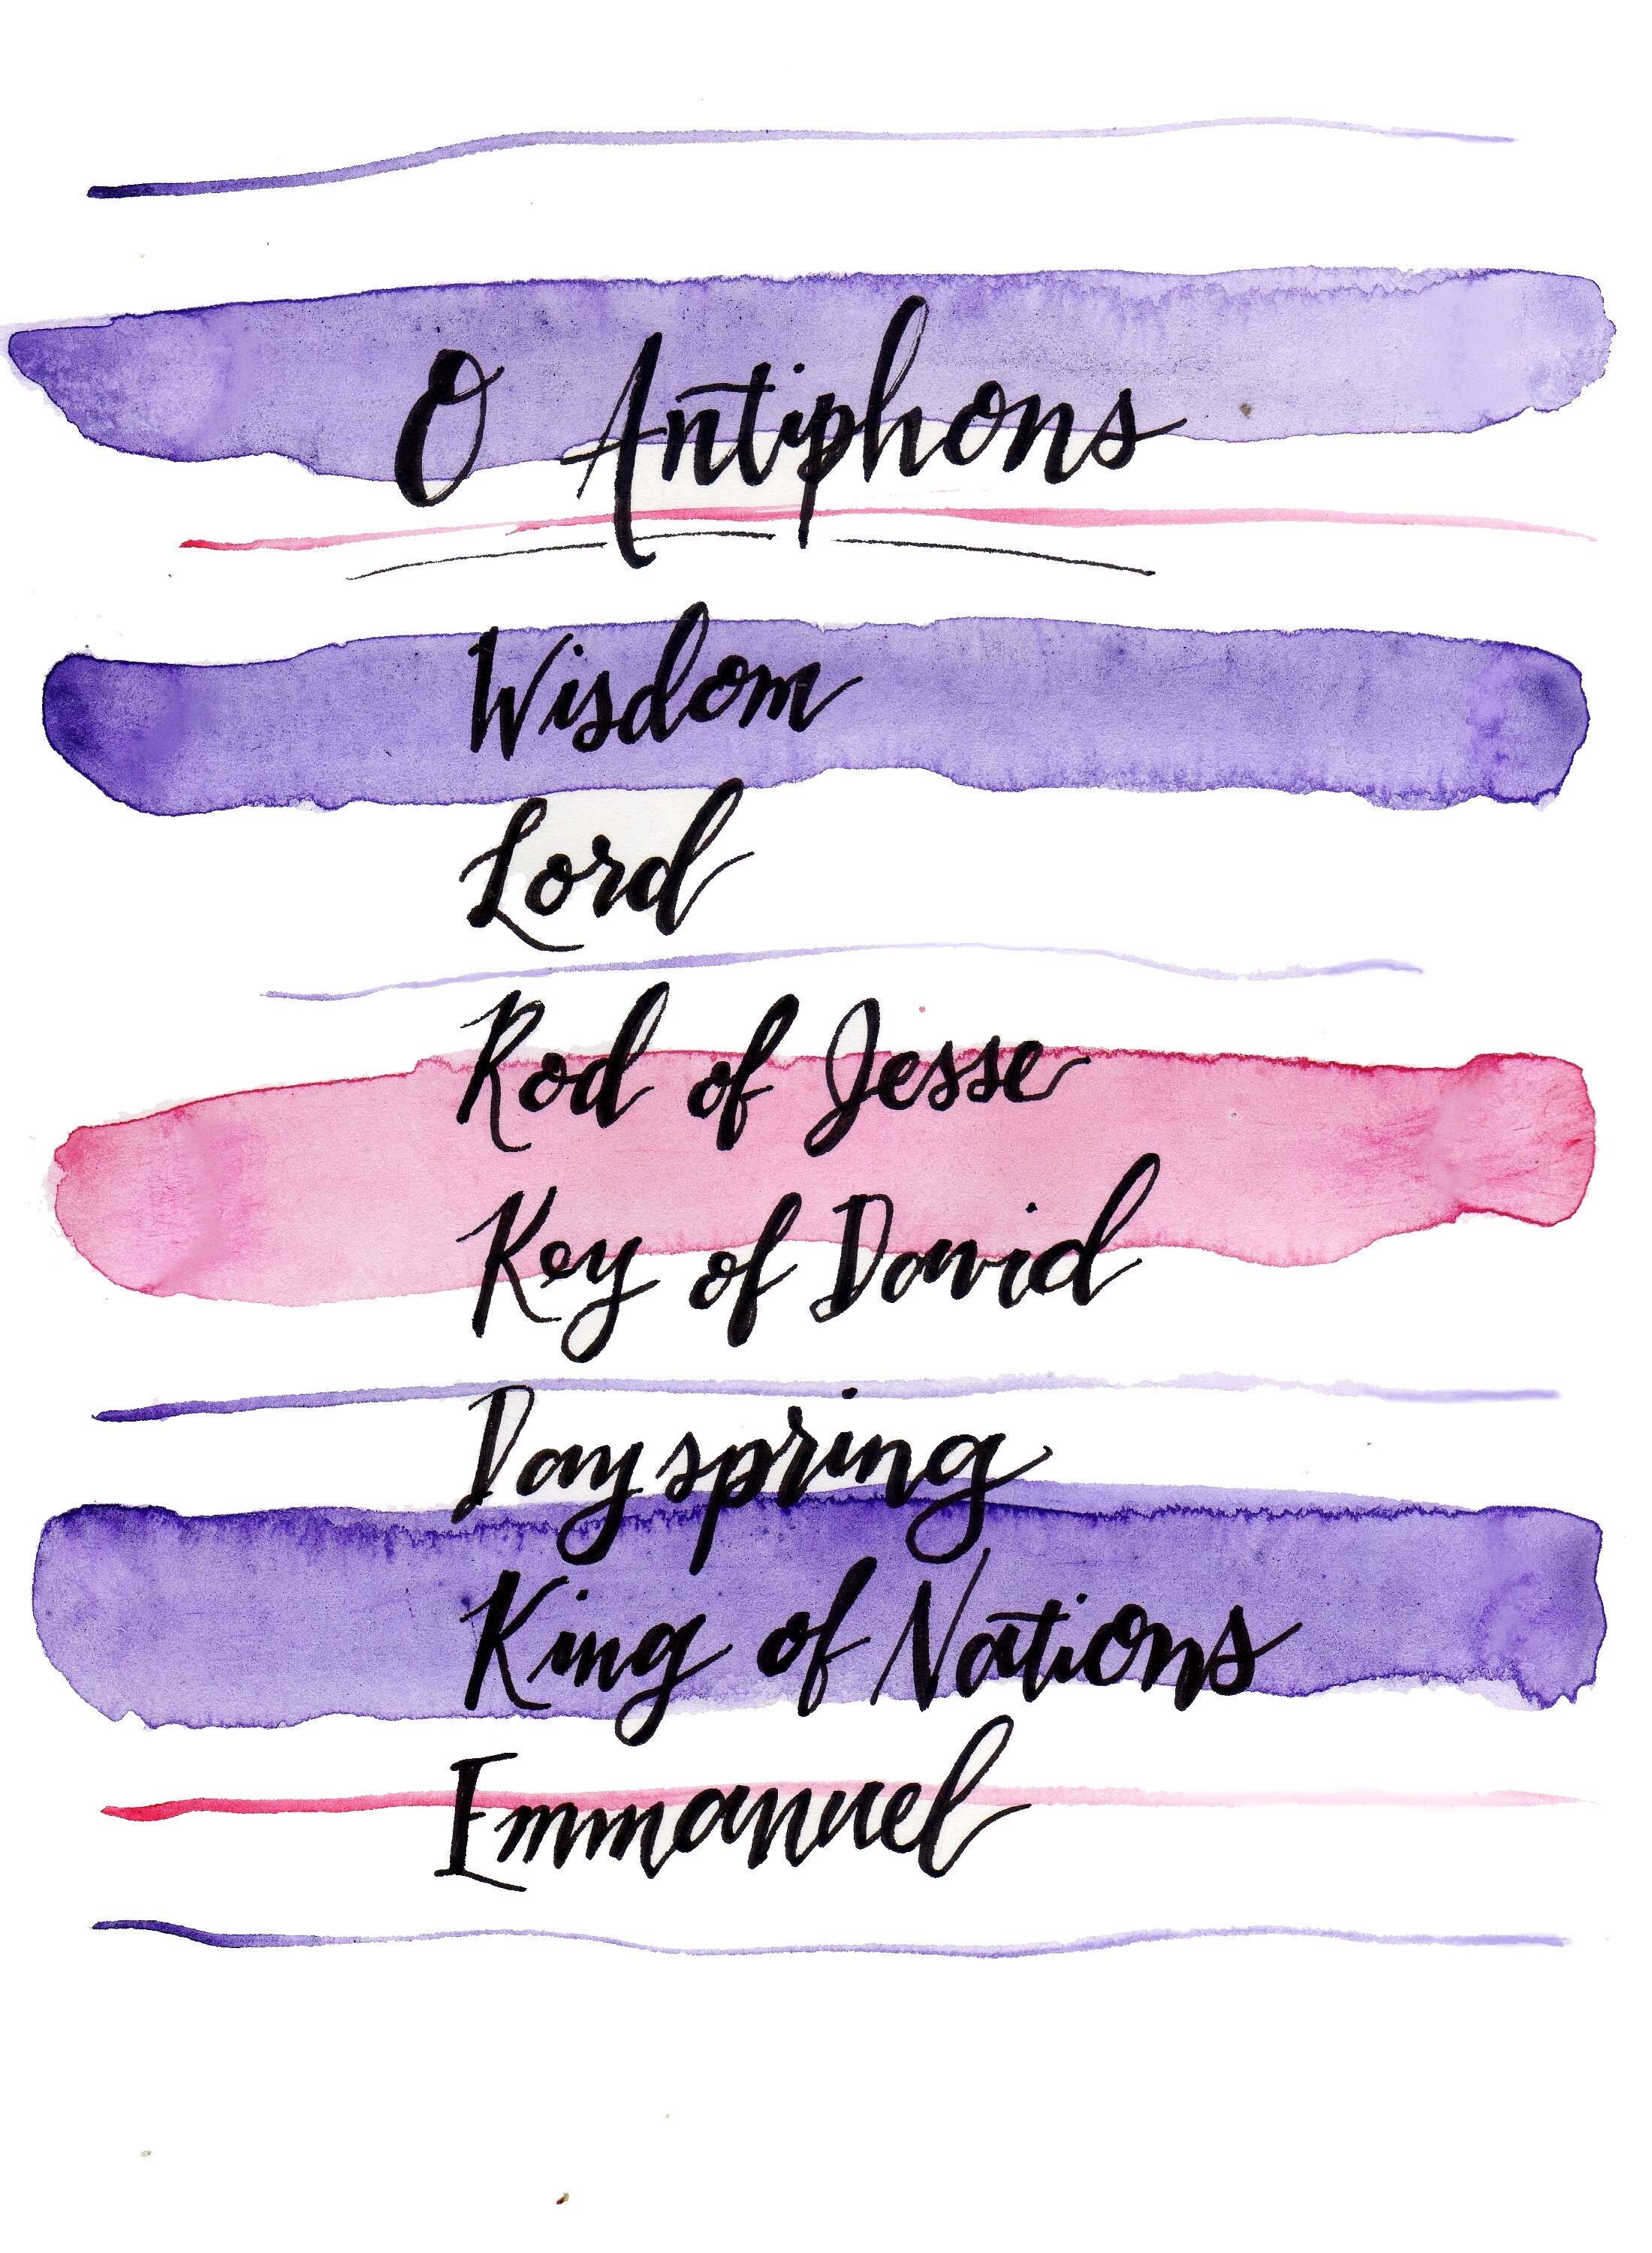 O Antiphons
Wisdom
Lord
Rod of Jesse
Key of David
Dayspring
King of Nations
Emmanuel